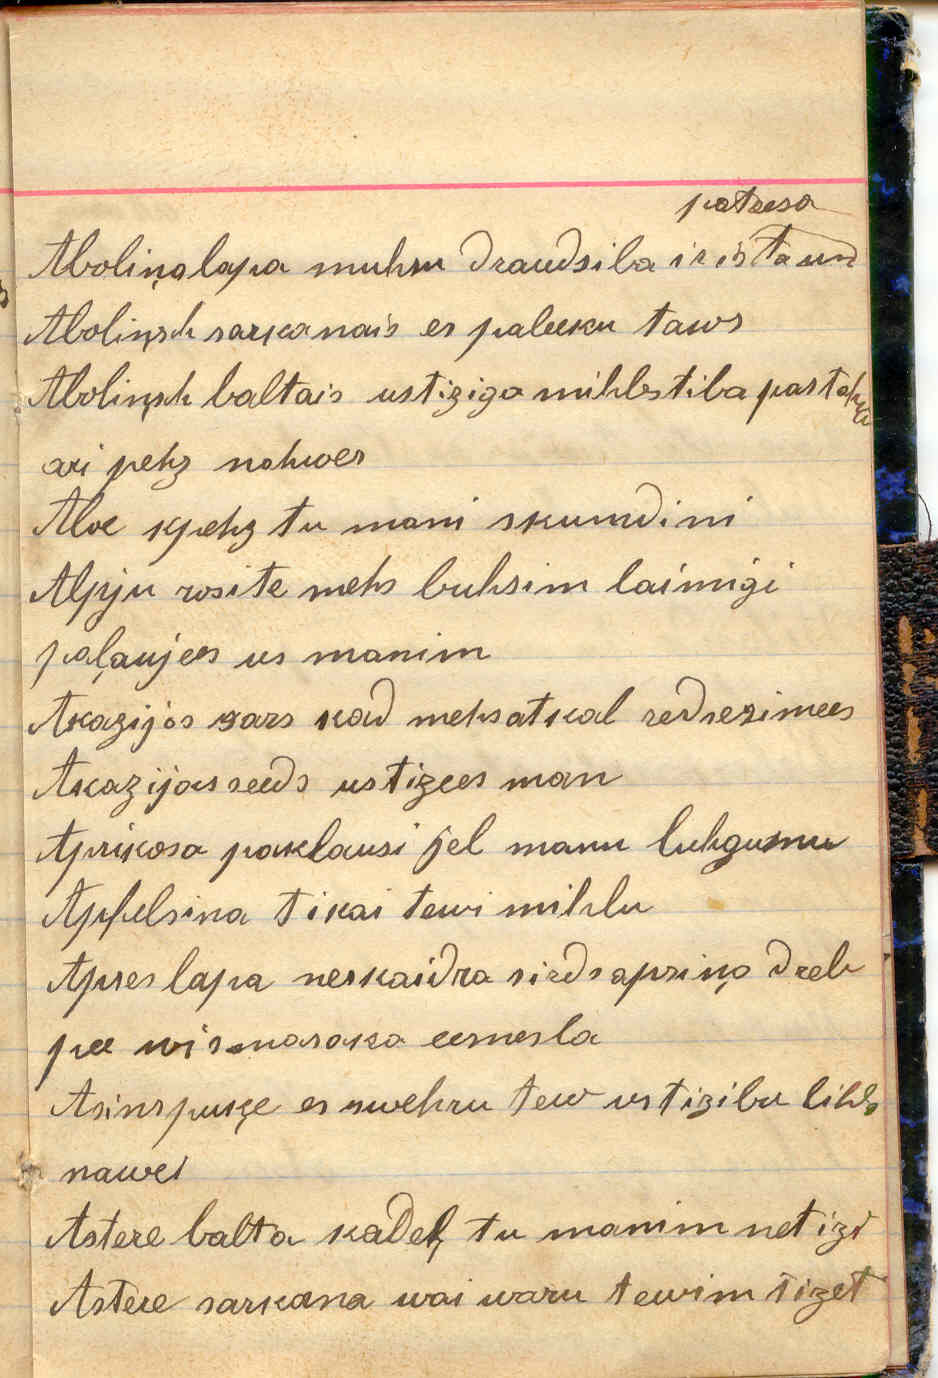 pateesa
Aboliņa lapa muhsu draudsiba ir ista un
Abolinsch sarkanais es paleeku taws
Abolinsch baltais ustiziga mihlestiba pastahw
ari pehz nahwes
Aloe kpehz tu mani skumdini
Alpju rosite mehs buhsim laimigi
paļaujees us manim
Akazijas sars kad mehs atkal redsesimees
Akazijas seeds ustizees man
Aprikosa paklausi jel manu luhgumu
Apfelsina tikai tewi mihlu
Apses lapa neskaidra sirdsapziņa dreb
pee wismasaka eemesla
Asinspuķe es swehru tew ustizibu lihds
nawei
Astere balta kadeļ tu manim netizi
Astere sarkana wai waru tewim tizet